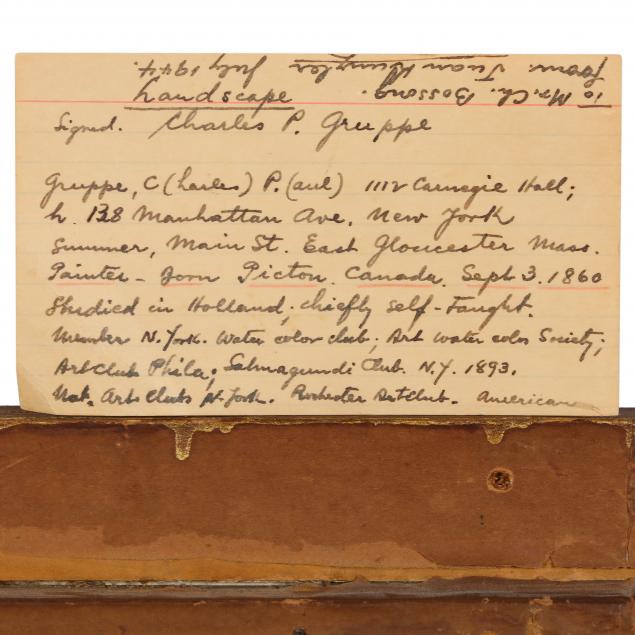 To Mr. Ch. Bossong.
from. Juan July 1944.
Landscape
Signed. Charles P. Gruppe
Gruppe, C (harles) P. (aul) 1112 Carnegie Hall;
h. 138 Manhattan Ave. New York
Summer, Main St. East Gloucester Mass.
Painter - Born Picton, Canada, Sept 3. 1860
Studied in Holland; chiefly self-Taught.
Member N. York. Water color club; Art water color Society;
Art Club Phila; Salmagundi Club. N.Y. 1893.
Nat. Arts Clubs N. York. Rochester Art Club. American